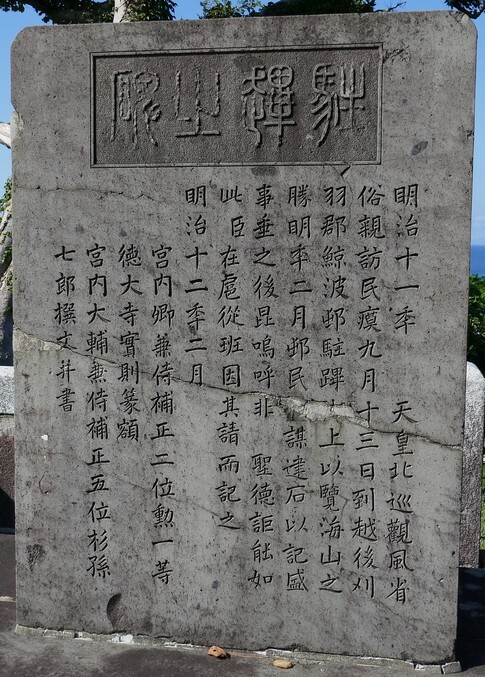 駐蹕
明治十一季　天皇北巡觀風省
俗親訪民瘼九月十三日到越後刈
羽郡鯨波邨駐蹕上以覽海山之
勝明季二月邨民謀建石以記盛
事垂之後昆嗚呼非　聖德詎能如
此臣在扈從班因其請而記之
明治十二季二月
宮内卿兼侍補正二位勲一等
德大寺實則篆額
宮内大輔兼侍補正五位杉孫
七郎撰文并書